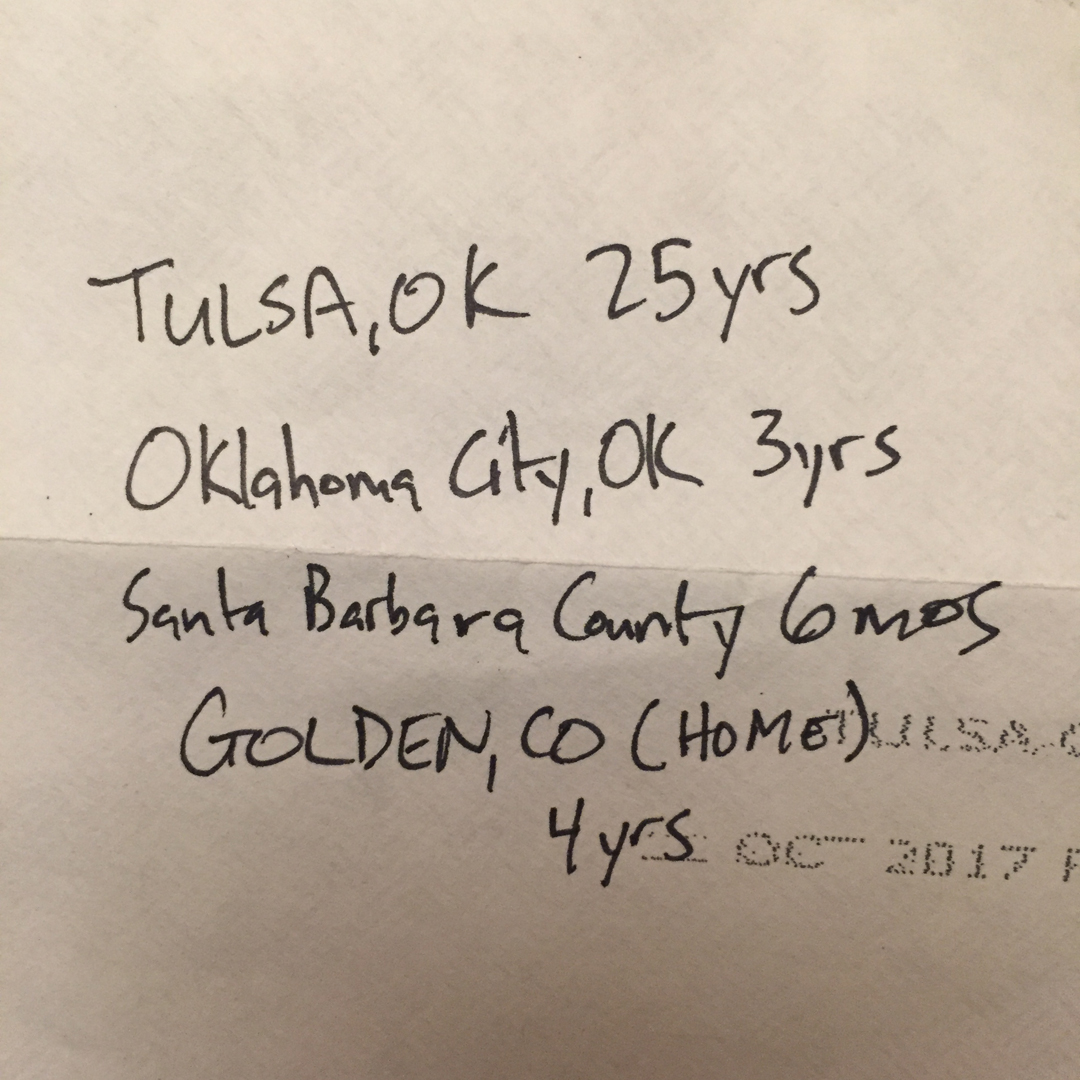 TULSA, OK 25yrs
Oklahoma City, OK 3yrs
Santa Barbara County 6 mos
GOLDEN, CO (HOME)
TULSA
4 yrs
OCT 2017